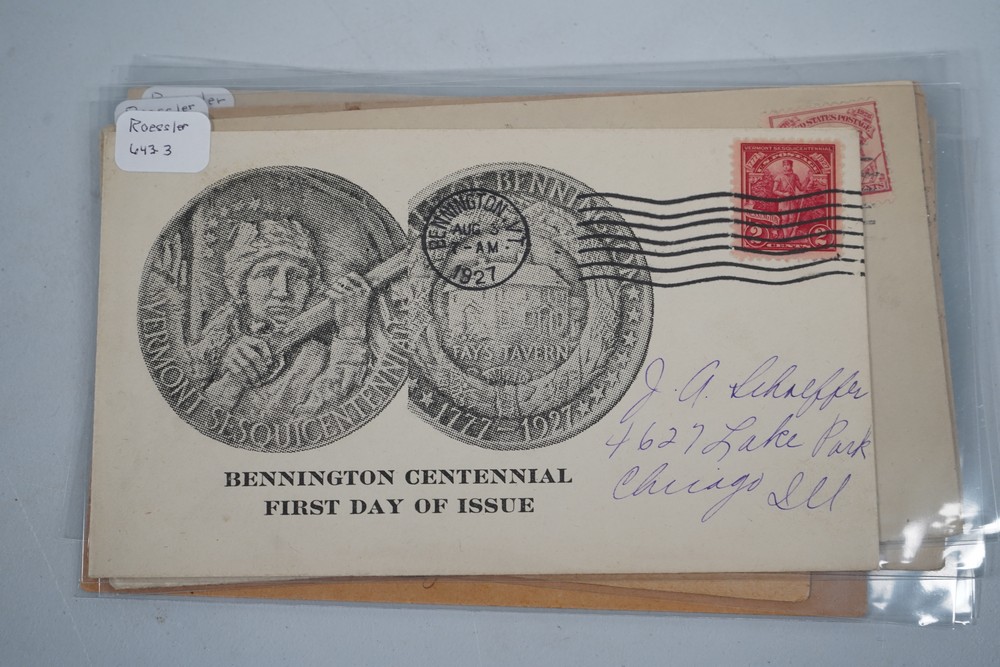 Roessler
643.3
VERMONT SESQUICENTENNIAL
BENNINGTON
FAY'S TAVERN
1777-1927
BENNINGTON, VT.
AUG 3
7-AM
1927
VERMONT SESQUICENTENNIAL
U.S. POSTAGE
2 CENTS 2
STATES POSTAGE
J. A. Schaeffer
4627 Lake Park
Chicago Ill
BENNINGTON CENTENNIAL
FIRST DAY OF ISSUE